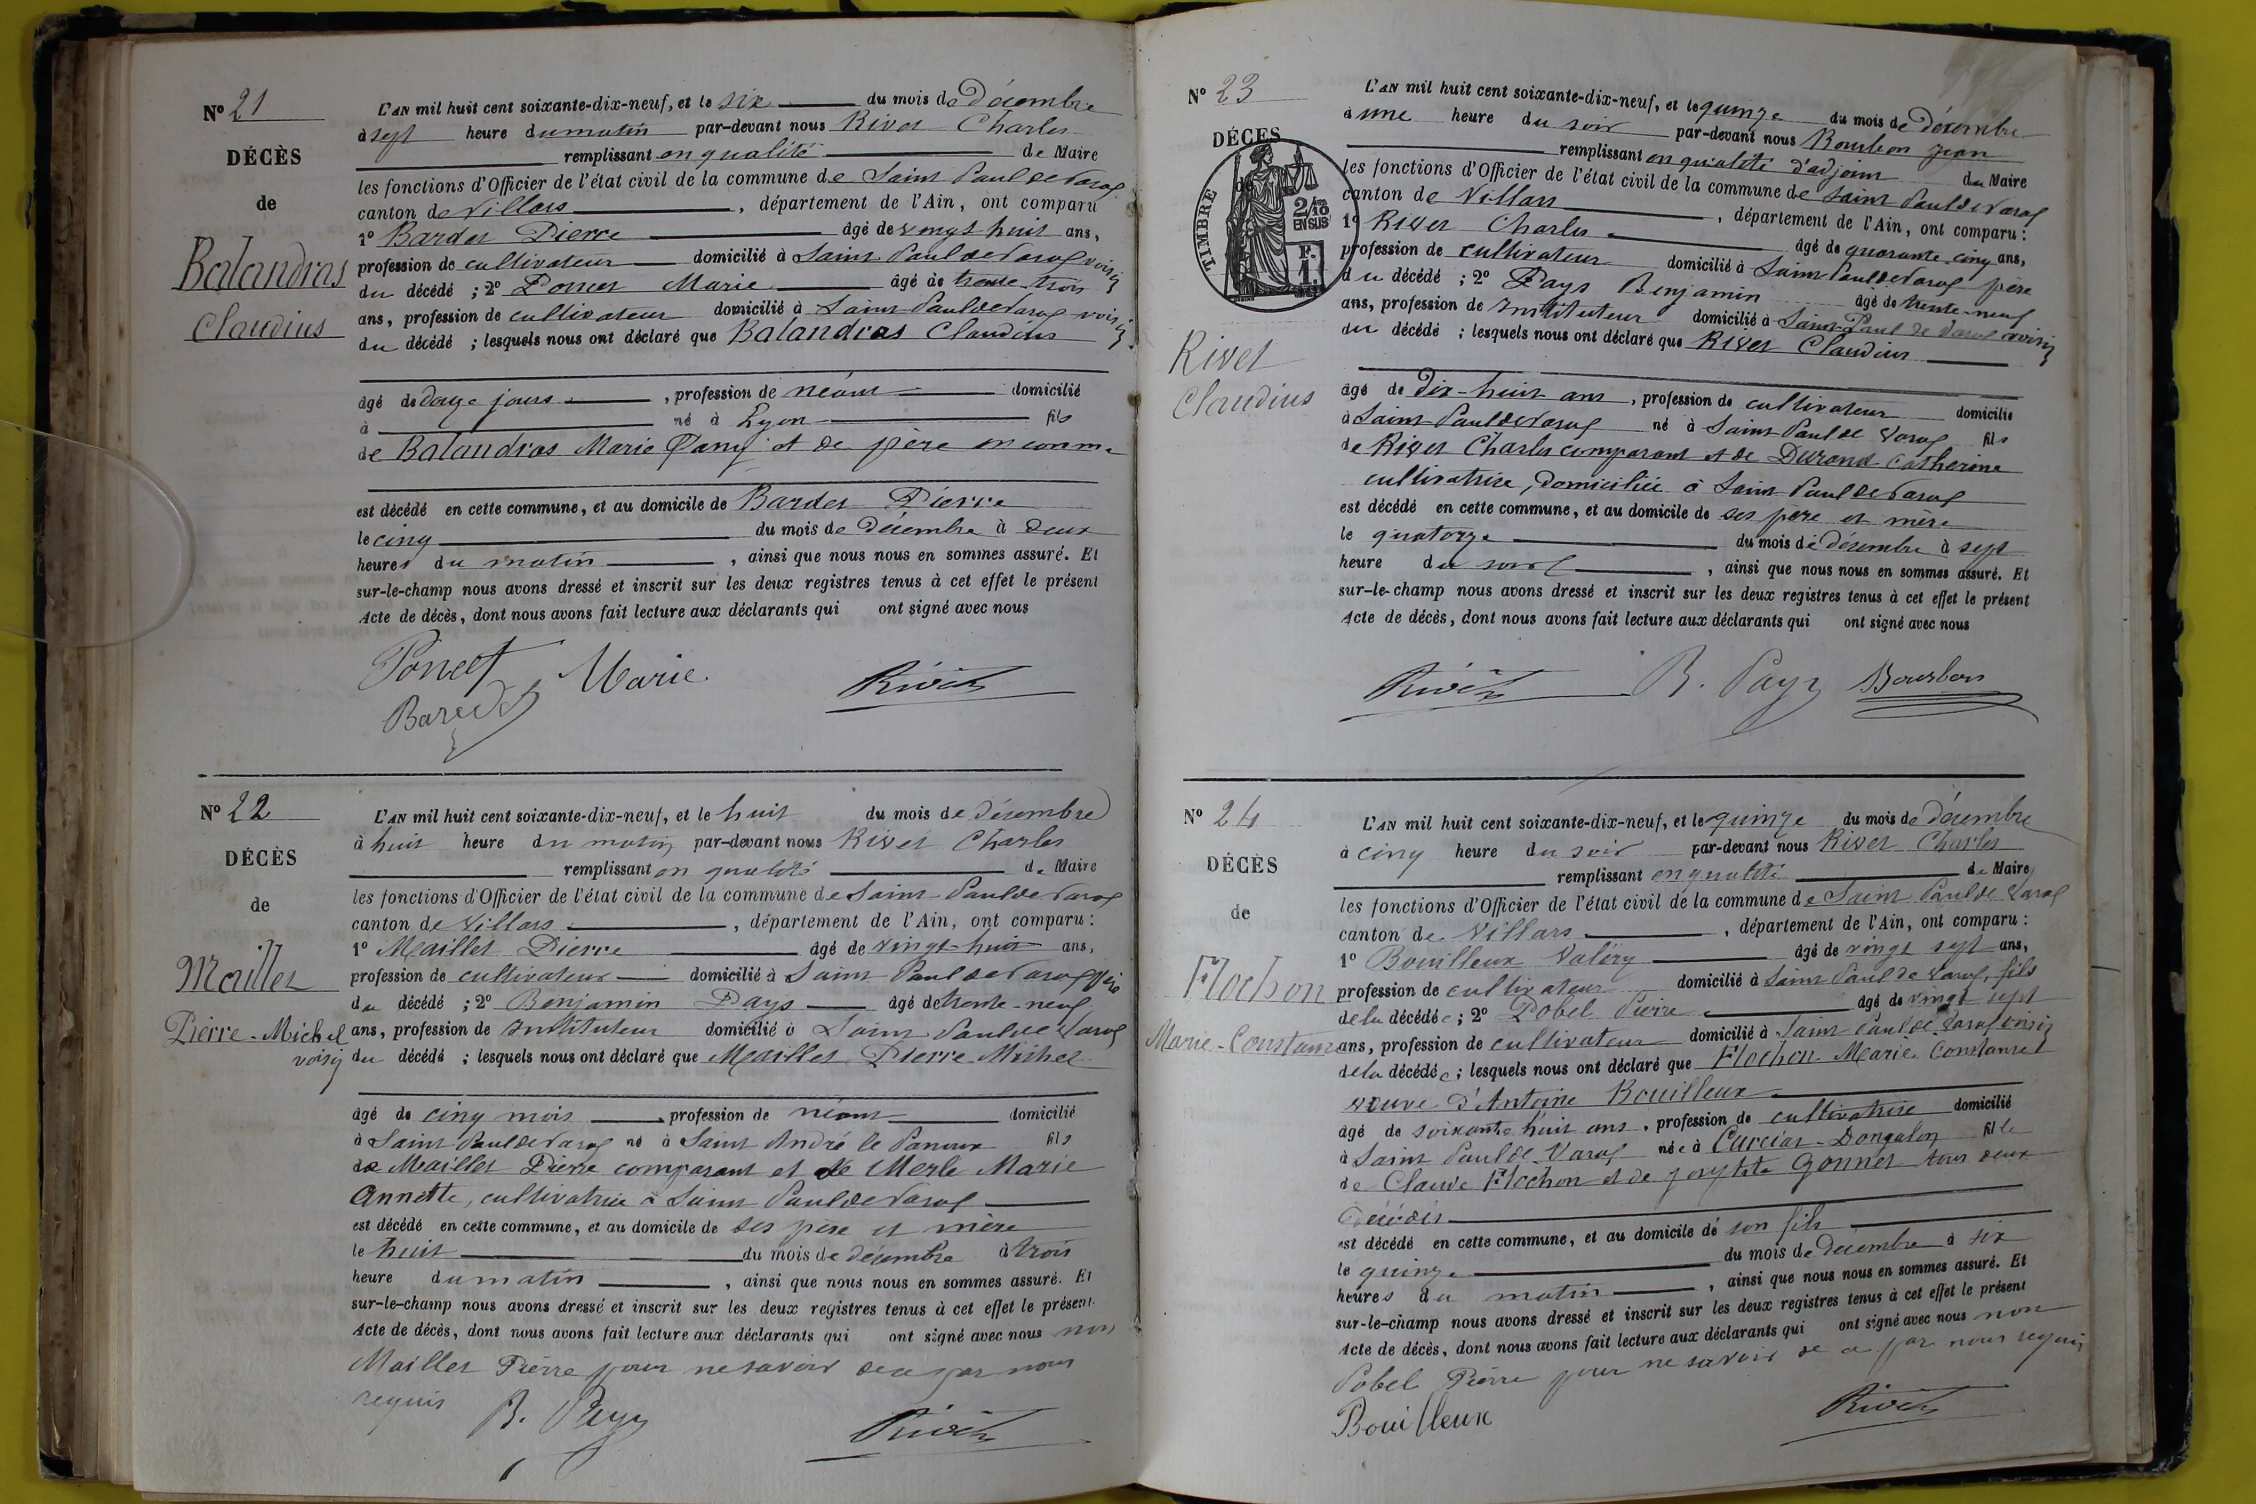 N° 21
DÉCÈS
de
Balandras
Claudius
L'AN mil huit cent soixante-dix-neuf, et le six du mois de Décembre
à sept heure du matin par-devant nous Rivet Charles
remplissant en qualité de Maire
les fonctions d'Officier de l'état civil de la commune de Saint Paul de Varax
canton de Villars, département de l'Ain, ont comparu
1° Bardet Pierre âgé de vingt huit ans,
profession de cultivateur domicilié à Saint Paul de Varax voisin
du décédé ; 2° Poncet Marie âgé de trente trois
ans, profession de cultivateur domicilié à Saint Paul de Varax voisin
du décédé ; lesquels nous ont déclaré que Balandras Claudius
âgé de douze jours, profession de néant domicilié
à né à Lyon fils
de Balandras Marie Fany et de père inconnu
est décédé en cette commune, et au domicile de Bardet Pierre
le cinq du mois de Décembre à deux
heures du matin, ainsi que nous nous en sommes assuré. Et
sur-le-champ nous avons dressé et inscrit sur les deux registres tenus à cet effet le présent
Acte de décès, dont nous avons fait lecture aux déclarants qui ont signé avec nous
Poncet Marie Rivet
Bardet
N° 22
DÉCÈS
de
Maillet
Pierre-Michel
voisin
L'AN mil huit cent soixante-dix-neuf, et le huit du mois de Décembre
à huit heure du matin par-devant nous Rivet Charles
remplissant en qualité de Maire
les fonctions d'Officier de l'état civil de la commune de Saint Paul de Varax
canton de Villars, département de l'Ain, ont comparu :
1° Maillet Pierre âgé de vingt-huit ans,
profession de cultivateur domicilié à Saint Paul de Varax père
du décédé ; 2° Benjamin Pays âgé de trente-neuf
ans, profession de Instituteur domicilié à Saint Paul de Varax
du décédé ; lesquels nous ont déclaré que Maillet Pierre Michel
âgé de cinq mois, profession de néant domicilié
à Saint Paul de Varax né à Saint André le Panoux fils
de Maillet Pierre comparant et de Merle Marie
Annette, cultivatrice à Saint Paul de Varax
est décédé en cette commune, et au domicile de ses père et mère
le huit du mois de décembre à trois
heure du matin, ainsi que nous nous en sommes assuré. Et
sur-le-champ nous avons dressé et inscrit sur les deux registres tenus à cet effet le présent
Acte de décès, dont nous avons fait lecture aux déclarants qui ont signé avec nous non
Maillet Pierre pour ne savoir de ce par nous
requis
B. Pays Rivet
N° 23
DÉCES
de
TIMBRE
2/10 EN SUS
F. 1.
Rivet
Claudius
L'AN mil huit cent soixante-dix-neuf, et le quinze du mois de décembre
à une heure du soir par-devant nous Bourbon Jean
remplissant en qualité d'adjoint du Maire
les fonctions d'Officier de l'état civil de la commune de Saint Paul de Varax
canton de Villars, département de l'Ain, ont comparu :
1° Rivet Charles âgé de quarante cinq ans,
profession de cultivateur domicilié à Saint Paul de Varax père
du décédé ; 2° Pays Benjamin âgé de trente-neuf
ans, profession de Instituteur domicilié à Saint-Paul de Varax voisin
du décédé ; lesquels nous ont déclaré que Rivet Claudius
âgé de dix-huit ans, profession de cultivateur domicilié
à Saint Paul de Varax né à Saint Paul de Varax fils
de Rivet Charles comparant et de Durand Catherine
cultivatrice, domiciliée à Saint Paul de Varax
est décédé en cette commune, et au domicile de ses père et mère
le quatorze du mois de décembre à sept
heure du soir, ainsi que nous nous en sommes assuré. Et
sur-le-champ nous avons dressé et inscrit sur les deux registres tenus à cet effet le présent
Acte de décès, dont nous avons fait lecture aux déclarants qui ont signé avec nous
Rivet B. Pays Bourbon
N° 24
DÉCÈS
de
Flochon
Marie-Constance
L'AN mil huit cent soixante-dix-neuf, et le quinze du mois de décembre
à cinq heure du soir par-devant nous Rivet Charles
remplissant en qualité de Maire
les fonctions d'Officier de l'état civil de la commune de Saint Paul de Varax
canton de Villars, département de l'Ain, ont comparu :
1° Bouilleux Valéry âgé de vingt sept ans,
profession de cultivateur domicilié à Saint Paul de Varax, fils
de la décédée ; 2° Pobel Pierre âgé de vingt sept
ans, profession de cultivateur domicilié à Saint Paul de Varax voisin
de la décédée ; lesquels nous ont déclaré que Flochon Marie Constance
veuve d'Antoine Bouilleux
âgé de soixante huit ans, profession de cultivatrice domicilié
à Saint Paul de Varax née à Curciat-Dongalon fille
de Claude Flochon et de Josephte Gonnet tous deux
décédés
est décédé en cette commune, et au domicile de son fils
le quinze du mois de Décembre à six
heures du matin, ainsi que nous nous en sommes assuré. Et
sur-le-champ nous avons dressé et inscrit sur les deux registres tenus à cet effet le présent
Acte de décès, dont nous avons fait lecture aux déclarants qui ont signé avec nous non
Pobel Pierre pour ne savoir de ce par nous requis
Bouilleux Rivet